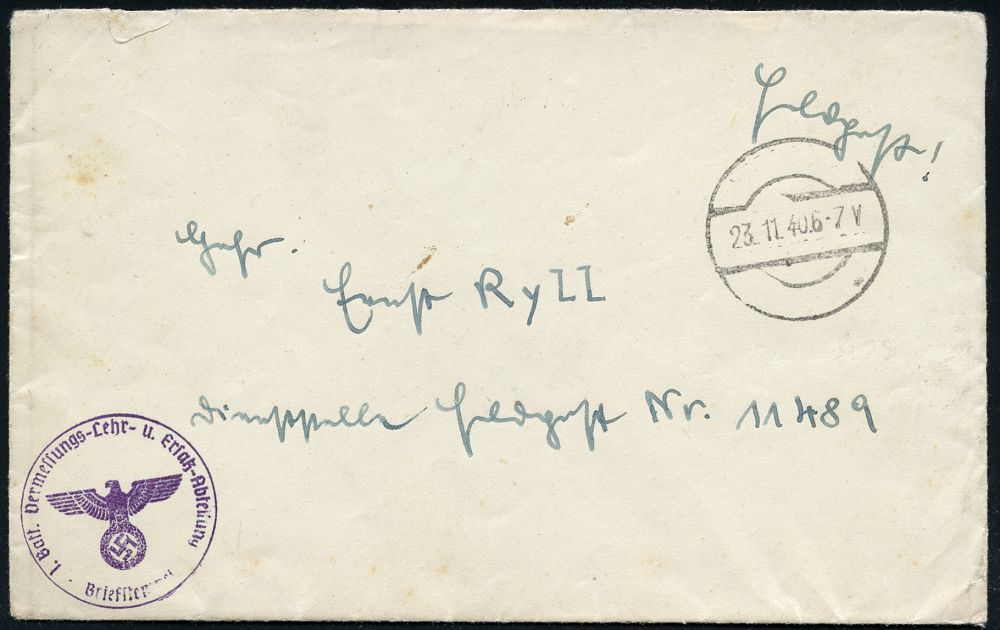 Feldpost!
23.11.40.6-7 V
Gefr.
Ernst Ryll
Dienststelle Feldpost Nr. 11489
1. Batt. Vermessungs-Lehr- u. Ersatz-Abteilung
Briefstempel